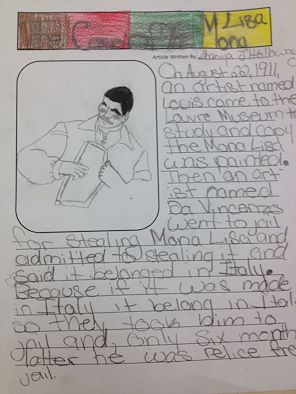 The M Lisa
Article Written By:
On August 22, 1911,
an artist named
Louis came to the
Louvre Museum to
study and copy
the Mona Lisa
was painted.
Then an art
ist named
Da Vincenzo
went to jail
for stealing Mona Lisa and
admitted to stealing it and
said it belonged in Italy.
Because if it was made
in Italy it belong in Itali
so they took him to
jail and, only six month
latter he was relice fre
jail.